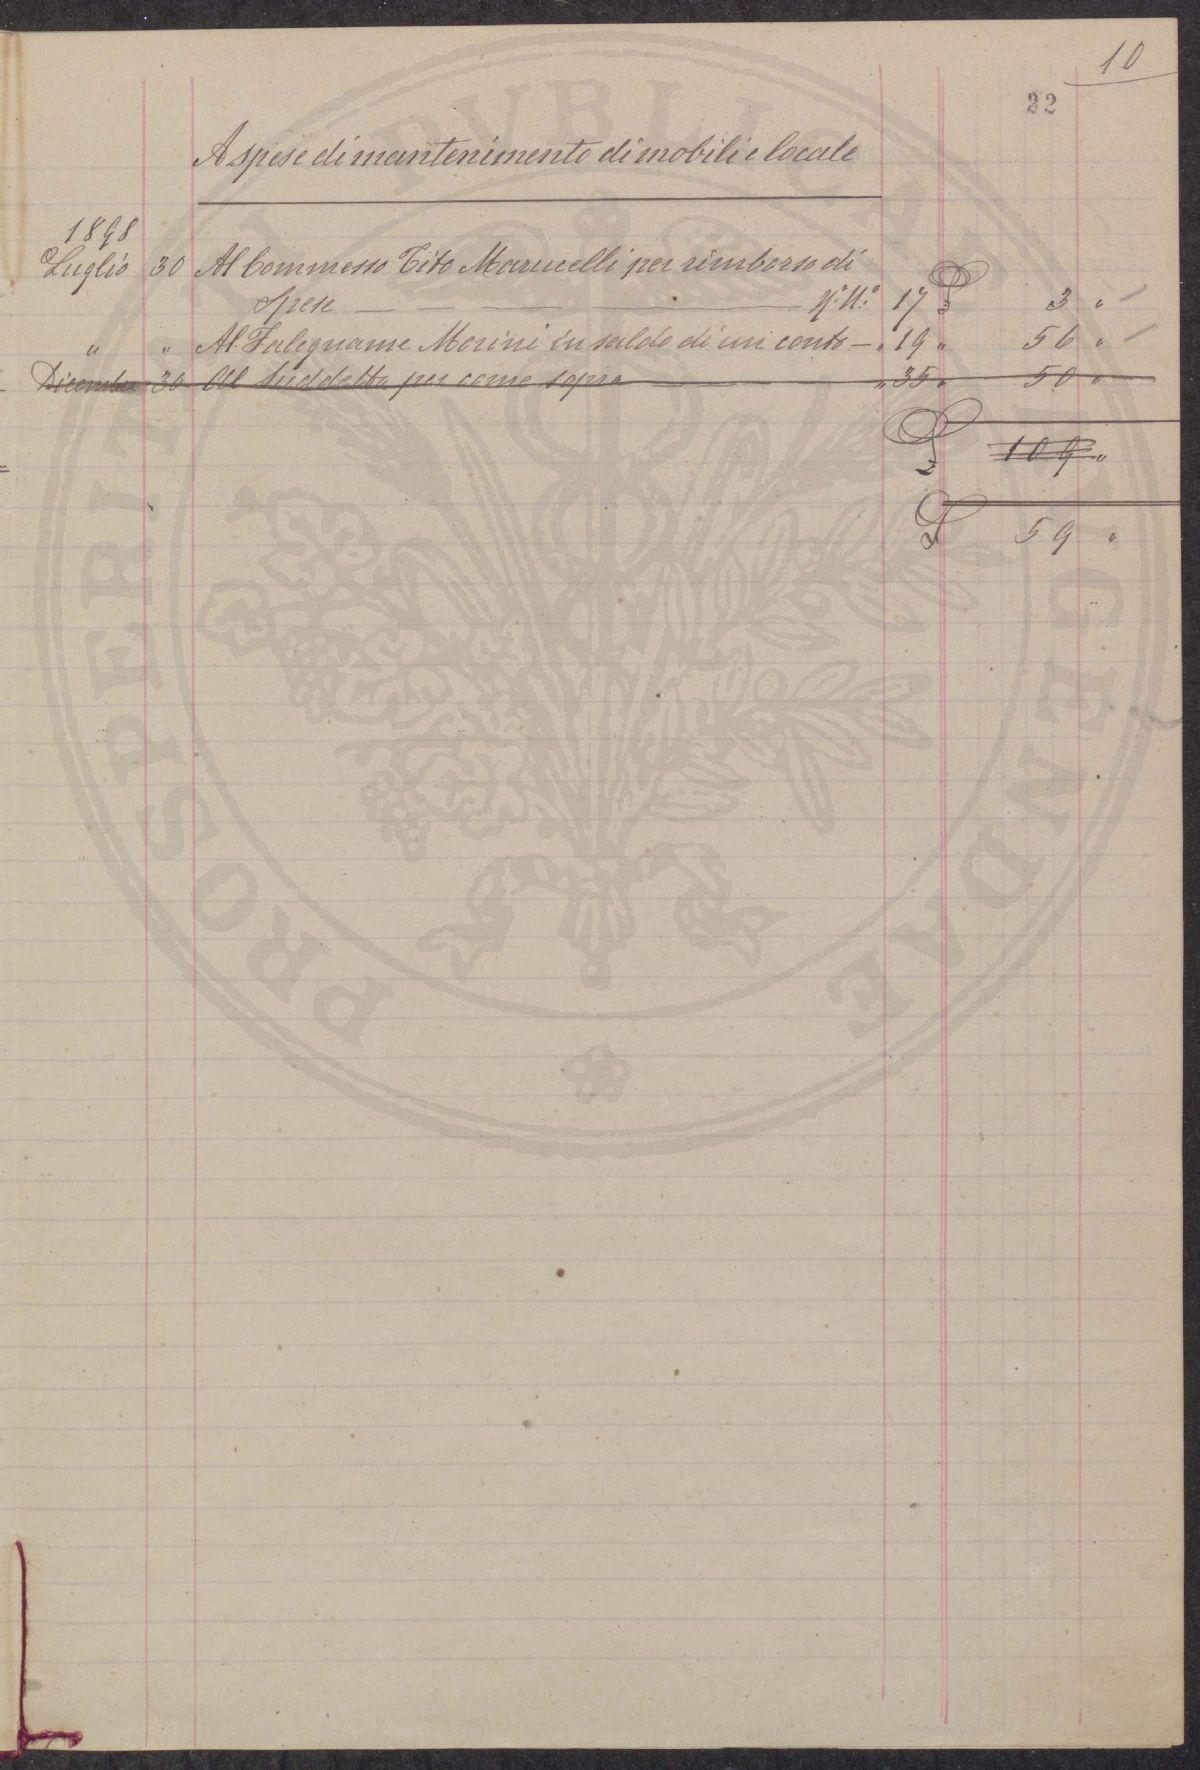 10
22
A spese di mantenimento di mobili e locale
1898
Luglio 30 Al Commesso Tito Marucelli per rimborso di
Spese — — — 17 £ 3 "
" " Al Falegname Morini in saldo di un conto — " 19 " 56 "
Dicembre 30 Al Suddetto per come sopra " 35 " 50 "
£ 109 "
£ 59 "
PROSPERITATI PUBLICAE AUGENDAE